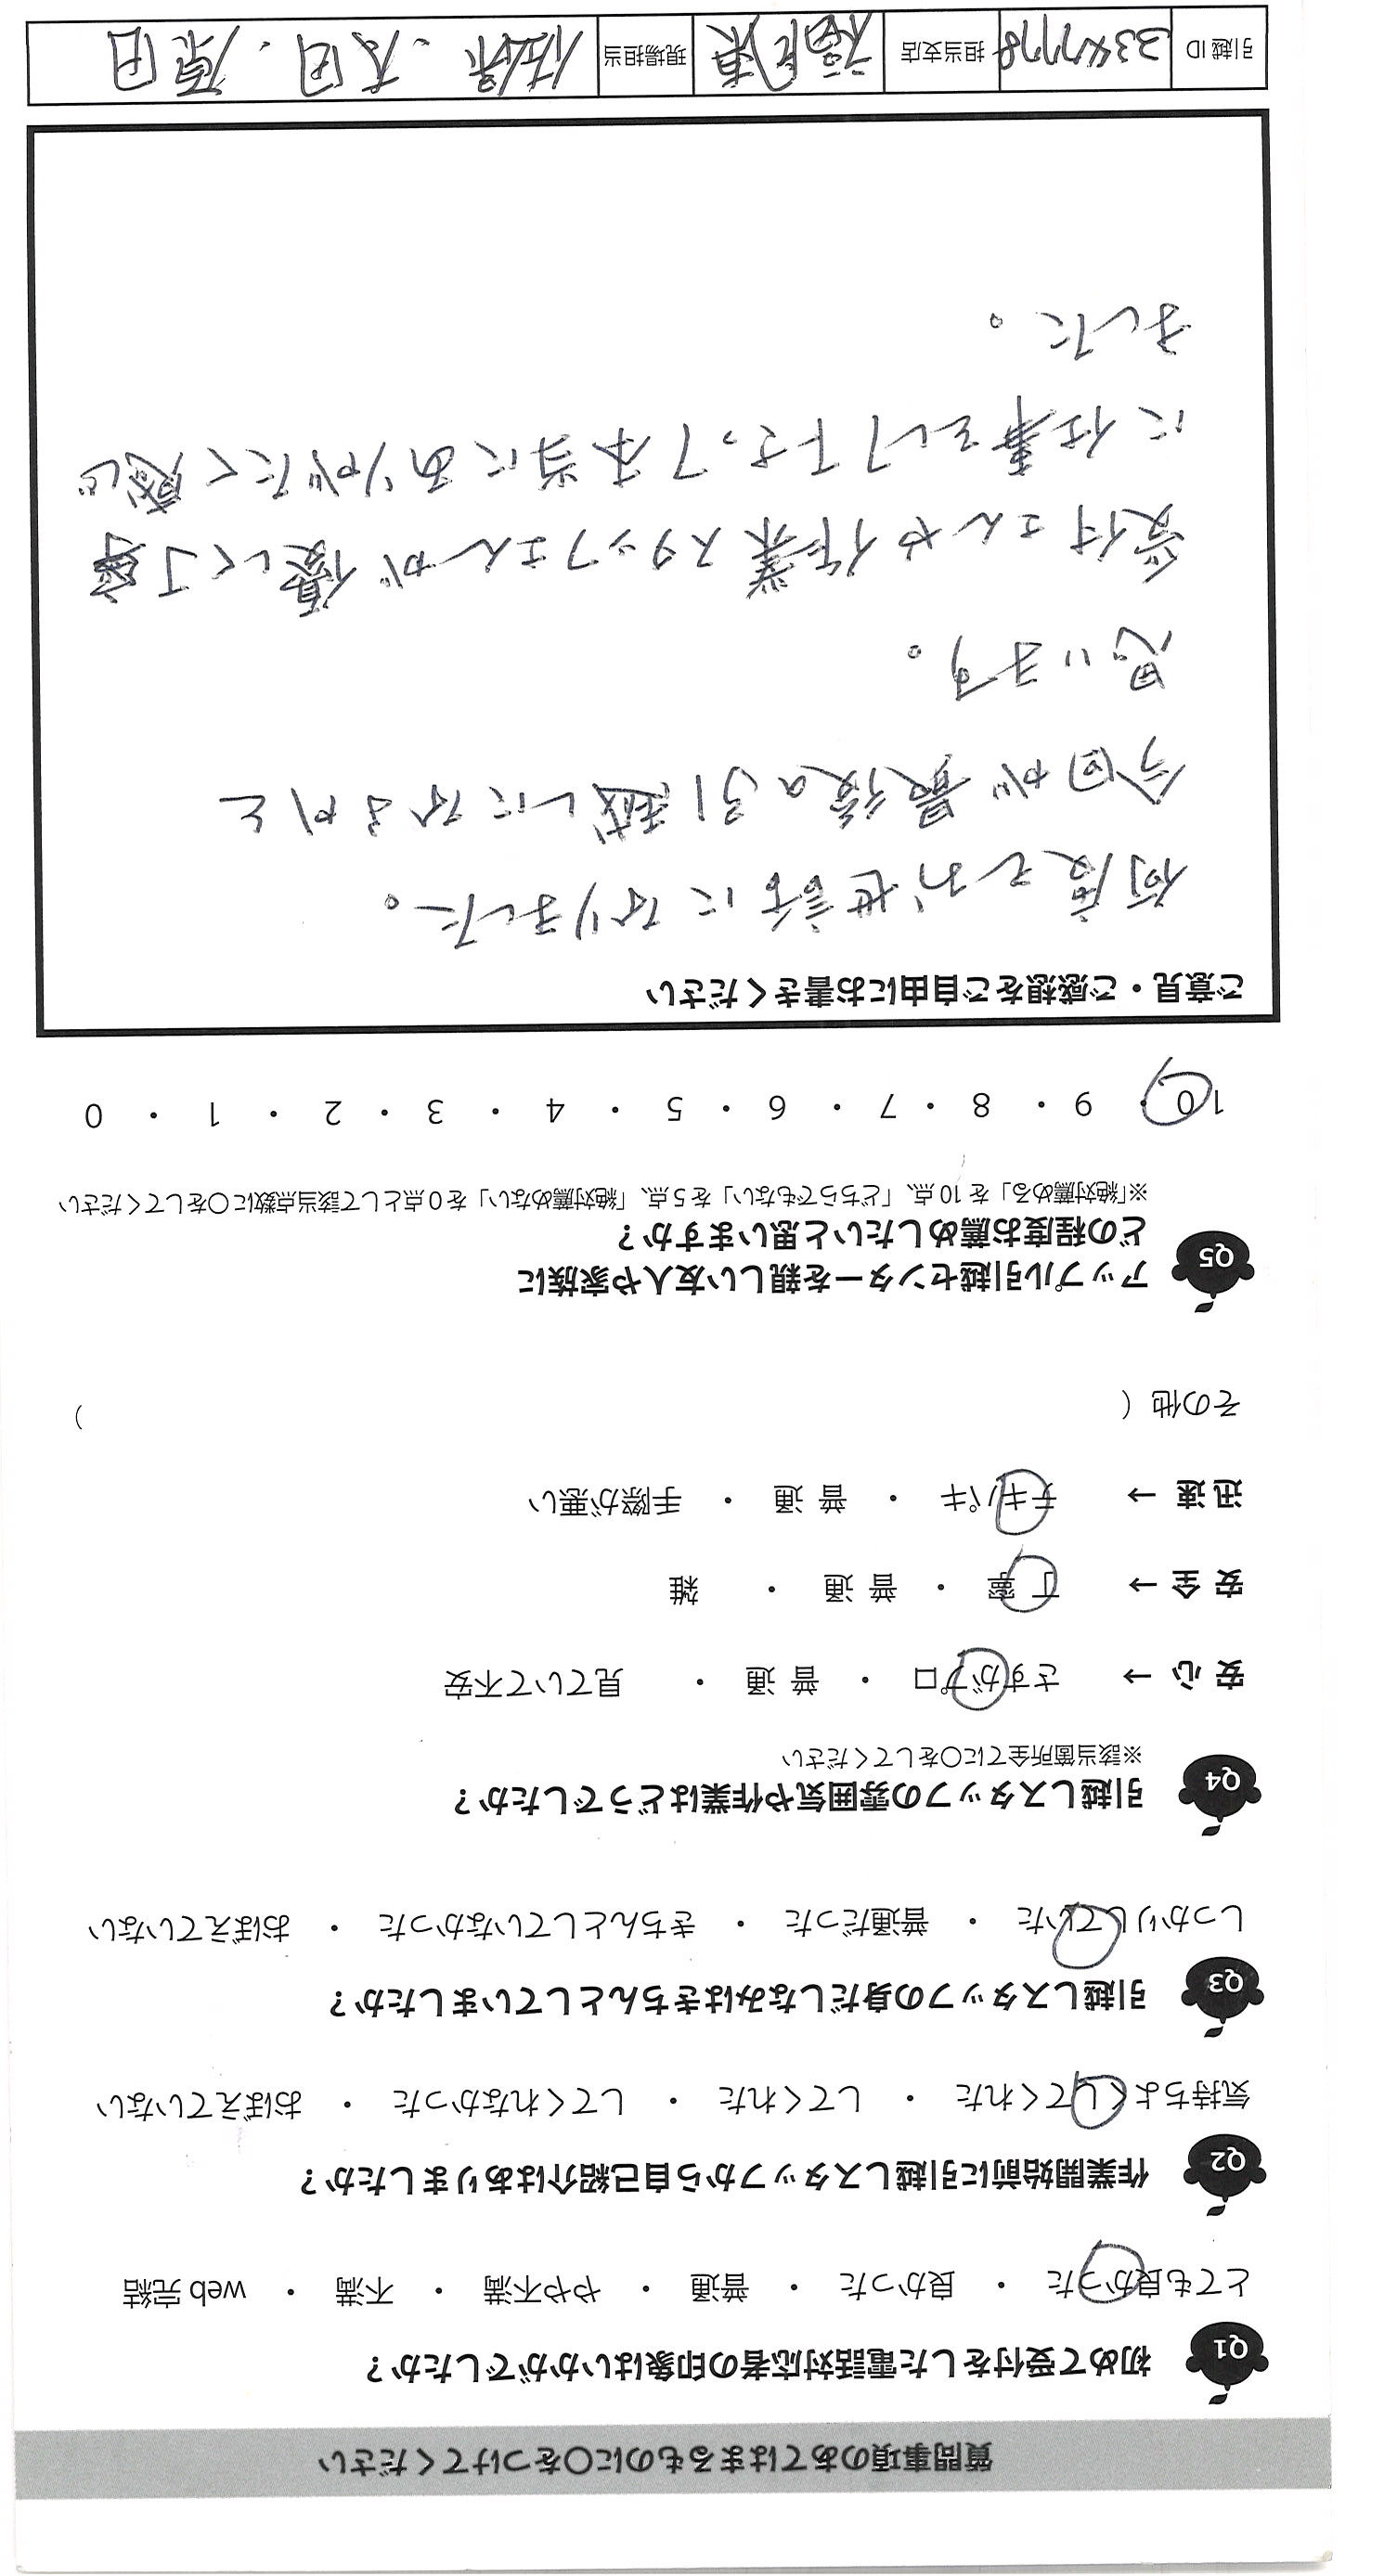 質問事項のあてはまるものに○をつけてください
Q1 初めて受付をした電話対応者の印象はいかがでしたか?
とても良かった ・ 良かった ・ 普通 ・ やや不満 ・ 不満 ・ web 完結
Q2 作業開始前に引越しスタッフから自己紹介はありましたか?
気持ちよくしてくれた ・ してくれた ・ してくれなかった ・ おぼえていない
Q3 引越しスタッフの身だしなみはきちんとしていましたか?
しっかりしていた ・ 普通だった ・ きちんとしていなかった ・ おぼえていない
Q4 引越しスタッフの雰囲気や作業はどうでしたか?
※該当箇所全てに○をしてください
安 心 → さすがプロ ・ 普 通 ・ 見ていて不安
安 全 → 丁 寧 ・ 普 通 ・ 雑
迅 速 → テキパキ ・ 普 通 ・ 手際が悪い
その他 ( )
Q5 アップル引越センターを親しい友人や家族に
どの程度お薦めしたいと思いますか?
※「絶対薦める」を 10 点、「どちらでもない」を 5 点、「絶対薦めない」を 0 点として該当点数に○をしてください
10 ・ 9 ・ 8 ・ 7 ・ 6 ・ 5 ・ 4 ・ 3 ・ 2 ・ 1 ・ 0
ご意見・ご感想をご自由にお書きください
何度もお世話になりました。
今回が最後の引越しになるかと
思います。
受付さんや作業スタッフさんが優しく丁寧
に仕事をして下さって本当にありがたく感じ
ました。
引越 ID 3347778 担当支店 福岡東 現場担当 佐保 . 太田 . 原田